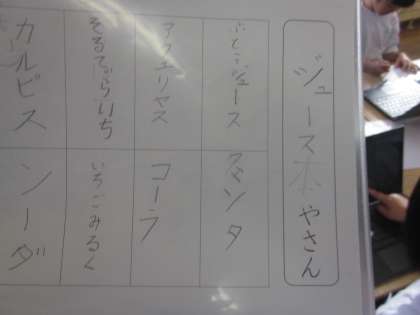 ジュースやさん
ぶどうジュース
ファンタ
アクエリヤス
コーラ
そるてぃらいち
いちごみるく
カルピス
ソーダ